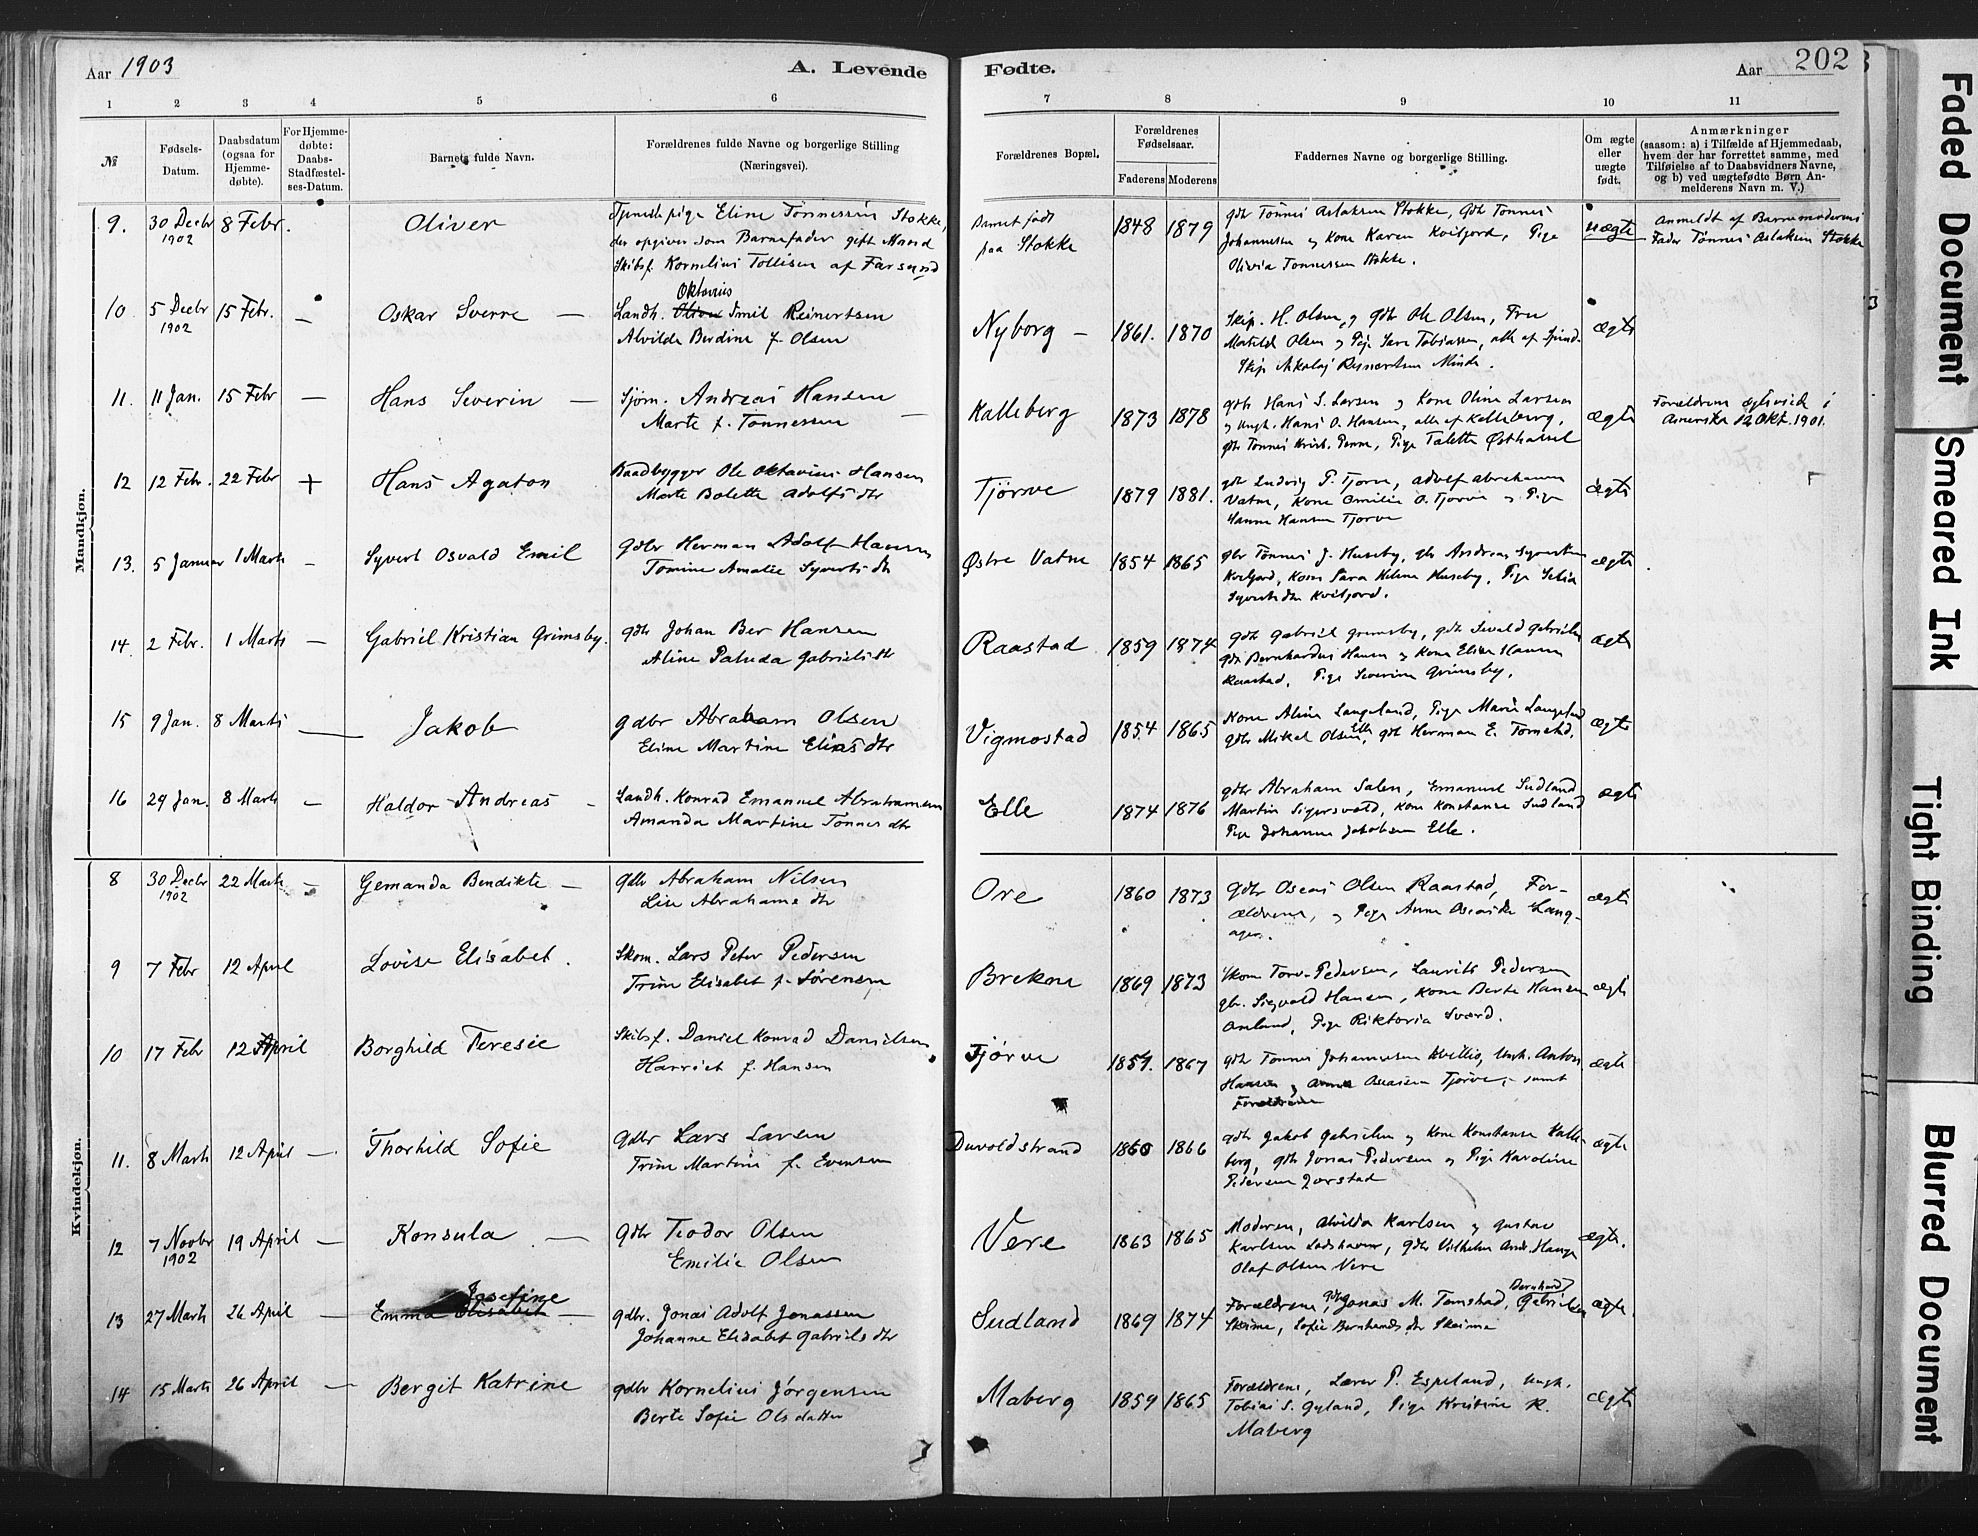 Aar 1903
A. Levende
Fødte.
Aar 202
1 2 3 4 5 6 7 8 9 10 11
№
Fødsels-
Datum.
Daabsdatum
(ogsaa for
Hjemme-
døbte).
For Hjemme-
døbte:
Daabs-
Stadfæstel-
ses-Datum.
Barnets fulde Navn.
Forældrenes fulde Navne og borgerlige Stilling
(Næringsvei).
Forældrenes Bopæl.
Forældrenes
Fødselsaar.
Faderens Moderens
Faddernes Navne og borgerlige Stilling.
Om ægte
eller
uægte
født.
Anmærkninger
(saasom: a) i Tilfælde af Hjemmedaab,
hvem der har forrettet samme, med
Tilføielse af to Daabsvidners Navne,
og b) ved uægtefødte Børn An-
melderens Navn m. V.)
Mandkjøn.
9. 30 Decbr 8 Febr.
1902
Oliver
Tjenestepige Eline Tönnessen Stokke,
der opgiver som Barnefader gift Mand
Skibsf. Kornelius Tollisen af Farsund
Barnet født
paa Stokke
1848 1879
gdbr Tönnes Aslaksen Stokke, Gdbr Tönnes
Johannesen og Kone Karen Kvifjord, Pige
Olivia Tonnessen Stokke.
uægte
Anmeldt af Barnemoderens
Fader Tönnes Aslaksen Stokke
10 5 Decbr 15 Febr. —
1902
Oskar Sverre —
Oktavius
Landh. Oliver Emil Reinertsen
Alvilde Berdine f. Olsen
Nyborg —
1861. 1870
Skip. H. Olsen, og Gdbr Ole Olsen, Fru
Matilde Olsen og Pige Sara Tobiassen, alle af Spind.
Skip Nikolaj Reinertsen Minde.
ægte
11. 11 Jan. 15 Febr —
Hans Severin —
Sjöm. Andreas Hansen
Marte f. Tonnessen —
Kalleberg
1873 1878
gdbr Hans S. Larsen og Kone Oline Larsen
og Ungk. Hans O. Hansen, alle af Kalleberg,
gdbr Tonnes Krist. Penne, Pige Talette Østhassel
ægte
Forældrene ægteviede i
Amerika 12 Okt. 1901.
12 12 Febr. 22 Febr +
Hans Agaton
Baadbygger Ole Oktavius Hansen
Marte Bolette Adolfsdtr
Tjörve
1879 1881.
gdbr Ludvig P. Tjorve, Adolf Abrahamsen
Vatne, Kone Emilie O. Tjorve og Pige
Hanne Hansen Tjorve
ægte
13. 5 Januar 1 Marts —
Syvert Osvald Emil
Gdbr Herman Adolf Hansen
Tomine Amalie Syvertsdtr
Østre Vatne
1854 1865
gbr Tönnes J. Huseby, gbr Andreas Syvertsen
Kvifjord, Kone Sara Helene Huseby, Pige
Syvertsdtr Kvifjord.
ægte
14 2 Febr. 1 Marts —
Gabriel Kristian Grimsby.
gdbr Johan Ber Hansen
Aline Paluda Gabrielsdtr
Raastad
1859 1874
gdbr Gabriel Grimsby, gdbr Sevald Gabrielsen
gdbr Bernhardus Hansen og Kone Elise Hansen
Raastad, Pige Severine Grimsby.
ægte
15 9 Jan. 8 Marts —
Jakob
gdbr Abraham Olsen
Eline Martine Eliasdtr
Vigmostad
1854 1865
Kone Aline Langeland, Pige Marie Langeland
gdbr Mikal Olsen Elle, gdb Herman E. Tomstad.
ægte
16 29 Jan. 8 Marts —
Haldor Andreas —
Landh. Konrad Emanuel Abrahamsen
Amanda Martine Tonnesdtr
Elle
1874 1876
gdbr Abraham Salen, Emanuel Sudland
Martin Sigersvold, Kone Konstanse Sudland
Pige Johanne Jakobsen Elle.
ægte
Kvindekjøn.
8 30 Decbr 22 Marts —
1902
Gemanda Bendikte —
gdbr Abraham Nilsen
Lise Abrahamsdtr
Ore
1860 1873
Gdbr Oseas Olsen Raastad, For-
ældrene, og Pige Anne Langaager.
ægte
9 7 Febr 12 April
Lovise Elisabet.
Skom. Lars Peter Pedersen
Trine Elisabet f. Sörensen
Brekne
1869 1873
Skom Pedersen, Laurits Pedersen
gbr. Sigvald Hansen, Kone Berte Hansen
Pige Viktoria Sværd.
ægte
10 17 Febr 12 April
Borghild Teresie
Skibsf. Daniel Konrad Danielsen
Harriet f. Hansen
Tjörve
1857. 1867
gdbr Tonnes Johannesen Ungk. Anton
Hansen og Anna Oseasen Tjorve, samt
Forældrene
ægte
11. 8 Marts 12 April —
Thorhild Sofie
Gdbr Lars Larsen
Trine Martine f. Evensen
Duvoldstrand
1860 1866
gdbr Jakob Gabrielsen og Kone Konstanse Kalle-
berg, gdbr Jonas Pedersen og Pige Karoline
Pedersen Jorstad
ægte
12 7 Novbr 19 April —
1902
Konsula —
Gdbr Teodor Olsen
Emilie Olsen
Vere
1863 1865
Moderen, Alvilda Karlsen og Gustav
Karlsen Loshavn, Gdbr Vilhelm Andr. Hauge
Olaf Olsen Vere
ægte.
13 27 Marts 26 April —
Josefine
Emma Elisabet —
gdbr. Jonas Adolf Jonassen
Johanne Elisabet Gabrielsdtr
Sudland
1869 1874
Forældrene, gdbr Jonas M. Tomstad, Bernhard Gabrielsen
Skeime, Sofie Bernhardsdtr Skeime
ægte.
14 15 Marts 26 April —
Bergit Katrine
gdbr Kornelius Jörgensen
Berte Sofie Olsdatter
Maberg
1859 1865
Forældrene, Lærer P. Espeland, Ungk.
Tobias S. Gyland, Pige Kristine K.
Maberg
ægte
Faded Document
Smeared Ink
Tight Binding
Blurred Document